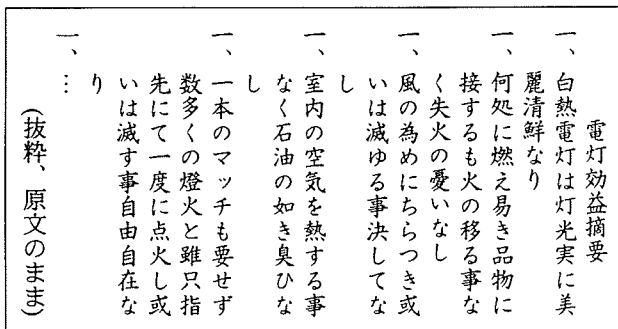 電灯効益摘要
一、白熱電灯は灯光実に美
麗清鮮なり
一、何処に燃え易き品物に
接するも火の移る事な
く失火の憂いなし
一、風の為めにちらつき或
いは滅ゆる事決してな
し
一、室内の空気を熱する事
なく石油の如き臭ひな
し
一、一本のマッチも要せず
数多くの燈火と雖只指
先にて一度に点火し或
いは滅す事自由自在な
り
一、…
(抜粋、原文のまま)